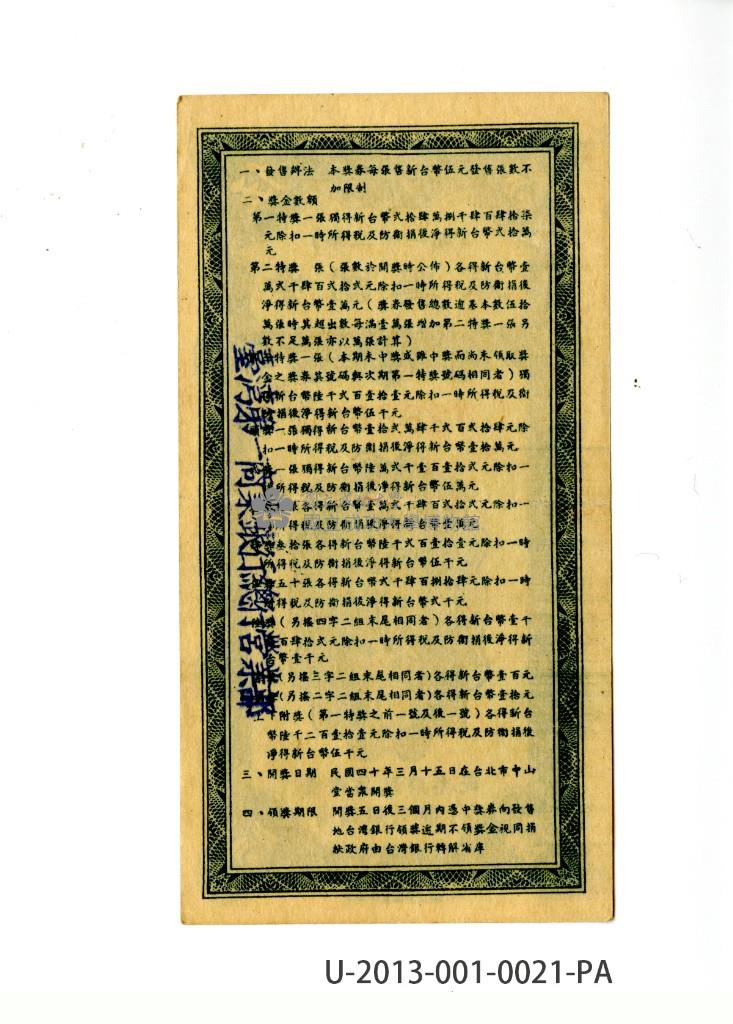 一、發售辦法 本獎券每張售新台幣伍元發售張數不
加限制
二、獎金數額
第一特獎一張獨得新台幣弍拾肆萬捌千肆百肆拾柒
元除扣一時所得稅及防衛捐後淨得新台幣弍拾萬
元
第二特獎 張(張數於開獎時公佈)各得新台幣壹
萬弍千肆百弍拾弍元除扣一時所得稅及防衛捐後
淨得新台幣壹萬元(獎券發售總數逾基本數伍拾
萬張時其超出數每滿壹萬張增加第二特獎一張另
數不足萬張亦以萬張計算)
特獎一張(本期未中獎或雖中獎而尚未領取獎
金之獎券其號碼與次期第一特獎號碼相同者)獨
新台幣陸千弍百壹拾壹元除扣一時所得稅及防衛
捐後淨得新台幣伍千元
獎一張獨得新台幣壹拾弍萬肆千弍百弍拾肆元除
扣一時所得稅及防衛捐後淨得新台幣壹拾萬元
一張獨得新台幣陸萬弍千壹百壹拾弍元除扣一
所得稅及防衛捐後淨得新台幣伍萬元
張各得新台幣壹萬弍千肆百弍拾弍元除扣一
得稅及防衛捐後淨得新台幣壹萬元
叁拾張各得新台幣陸千弍百壹拾壹元除扣一時
所得稅及防衛捐後淨得新台幣伍千元
五十張各得新台幣弍千肆百捌拾肆元除扣一時
得稅及防衛捐後淨得新台幣弍千元
(另搖四字二組末尾相同者)各得新台幣壹千
百肆拾弍元除扣一時所得稅及防衛捐後淨得新
幣壹千元
(另搖三字二組末尾相同者)各得新台幣壹百元
(另搖二字二組末尾相同者)各得新台幣壹拾元
附獎(第一特獎之前一號及後一號)各得新台
幣陸千二百壹拾壹元除扣一時所得稅及防衛捐後
淨得新台幣伍千元
三、開獎日期 民國四十年三月十五日在台北市中山
堂當衆開獎
四、領獎期限 開獎五日後三個月內憑中獎券向發售
地台灣銀行領獎逾期不領獎金視同捐
献政府由台灣銀行轉解省庫
臺灣第一商業銀行
U-2013-001-0021-PA